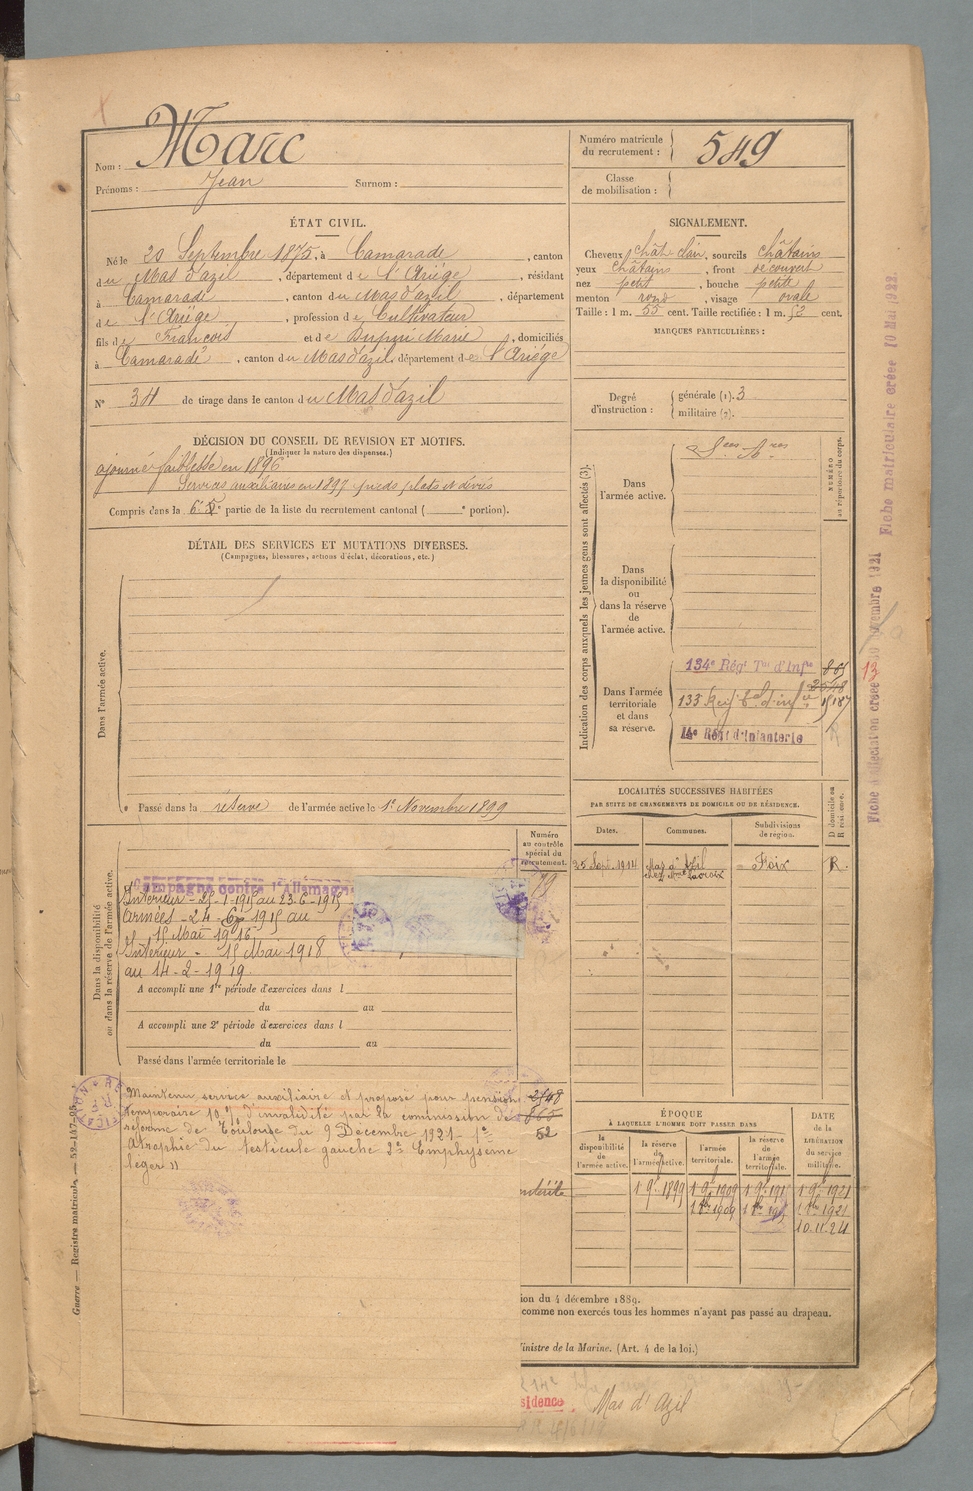 Nom : Marc
Prénoms : Jean Surnom :
Numéro matricule du recrutement : 549
Classe de mobilisation :
ÉTAT CIVIL.
Né le 20 Septembre 1875, à Camarade, canton
du Mas d'azil, département de l'Ariège, résidant
à Camarade, canton du Mas d'azil, département
de l'Ariège, profession de Cultivateur
fils de François et de Dupuy Marie, domiciliés
à Camarade, canton du Mas d'azil, département de l'Ariège
N° 34 de tirage dans le canton du Mas d'azil
SIGNALEMENT.
Cheveux chât clair, sourcils châtains
yeux châtains, front découvert
nez petit, bouche petite
menton rond, visage ovale
Taille : 1 m. 55 cent. Taille rectifiée : 1 m. 52 cent.
MARQUES PARTICULIÈRES :
Degré d'instruction : générale (1). 3
militaire (2).
DÉCISION DU CONSEIL DE REVISION ET MOTIFS.
(Indiquer la nature des dispenses.)
ajourné faiblesse en 1896
Services auxiliaires en 1897 pieds plats et déviés
Compris dans la 6e partie de la liste du recrutement cantonal ( e portion).
DÉTAIL DES SERVICES ET MUTATIONS DIVERSES.
(Campagnes, blessures, actions d'éclat, décorations, etc.)
Dans l'armée active.
Passé dans la réserve de l'armée active le 1er Novembre 1899
Indication des corps auxquels les jeunes gens sont affectés (3).
NUMÉRO au répertoire du corps.
Dans l'armée active.
Dans la disponibilité ou dans la réserve de l'armée active.
Dans l'armée territoriale et dans sa réserve.
134e Régt Tal d'Infie 865
133 Regt tal d'inf 2548
14e Régt d'infanterie
LOCALITÉS SUCCESSIVES HABITÉES
PAR SUITE DE CHANGEMENTS DE DOMICILE OU DE RÉSIDENCE.
Dates. Communes. Subdivisions de région. D domicile ou R résidence.
25 Sept. 1914 Mas d'Azil chez Mme Lacroix Foix R.
Numéro au contrôle spécial du recrutement.
Dans la disponibilité ou dans la réserve de l'armée active.
Campagne contre l'Allemagne
Intérieur - 25-1-1915 au 23-6-1915
Armées - 24-6-1915 au
15 Mai 1916
Intérieur - 15 Mai 1918
au 14-2-1919
A accompli une 1re période d'exercices dans l
du au
A accompli une 2e période d'exercices dans l
du au
Passé dans l'armée territoriale le
Maintenu service auxiliaire et proposé pour pension
temporaire 10 % d'invalidité par la commission de
réforme de Toulouse du 9 Décembre 1921 - 1°
Atrophie du testicule gauche 2° Emphysème
léger »
2548
865
52
ÉPOQUE
À LAQUELLE L'HOMME DOIT PASSER DANS
la disponibilité de l'armée active. la réserve de l'armée active. l'armée territoriale. la réserve de l'armée territoriale. DATE de la LIBÉRATION du service militaire.
1 9bre 1899 1 9bre 1909 1 9bre 1915 1 9bre 1921
10.11.24
ion du 4 décembre 1889.
comme non exercés tous les hommes n'ayant pas passé au drapeau.
Ministre de la Marine. (Art. 4 de la loi.)
sidence Mas d'Azil
Guerre — Registre matricule — 52-147-05
Fiche matriculaire créée 10 Mai 1922
Fiche d'Affectation créée 9 novembre 1921
13